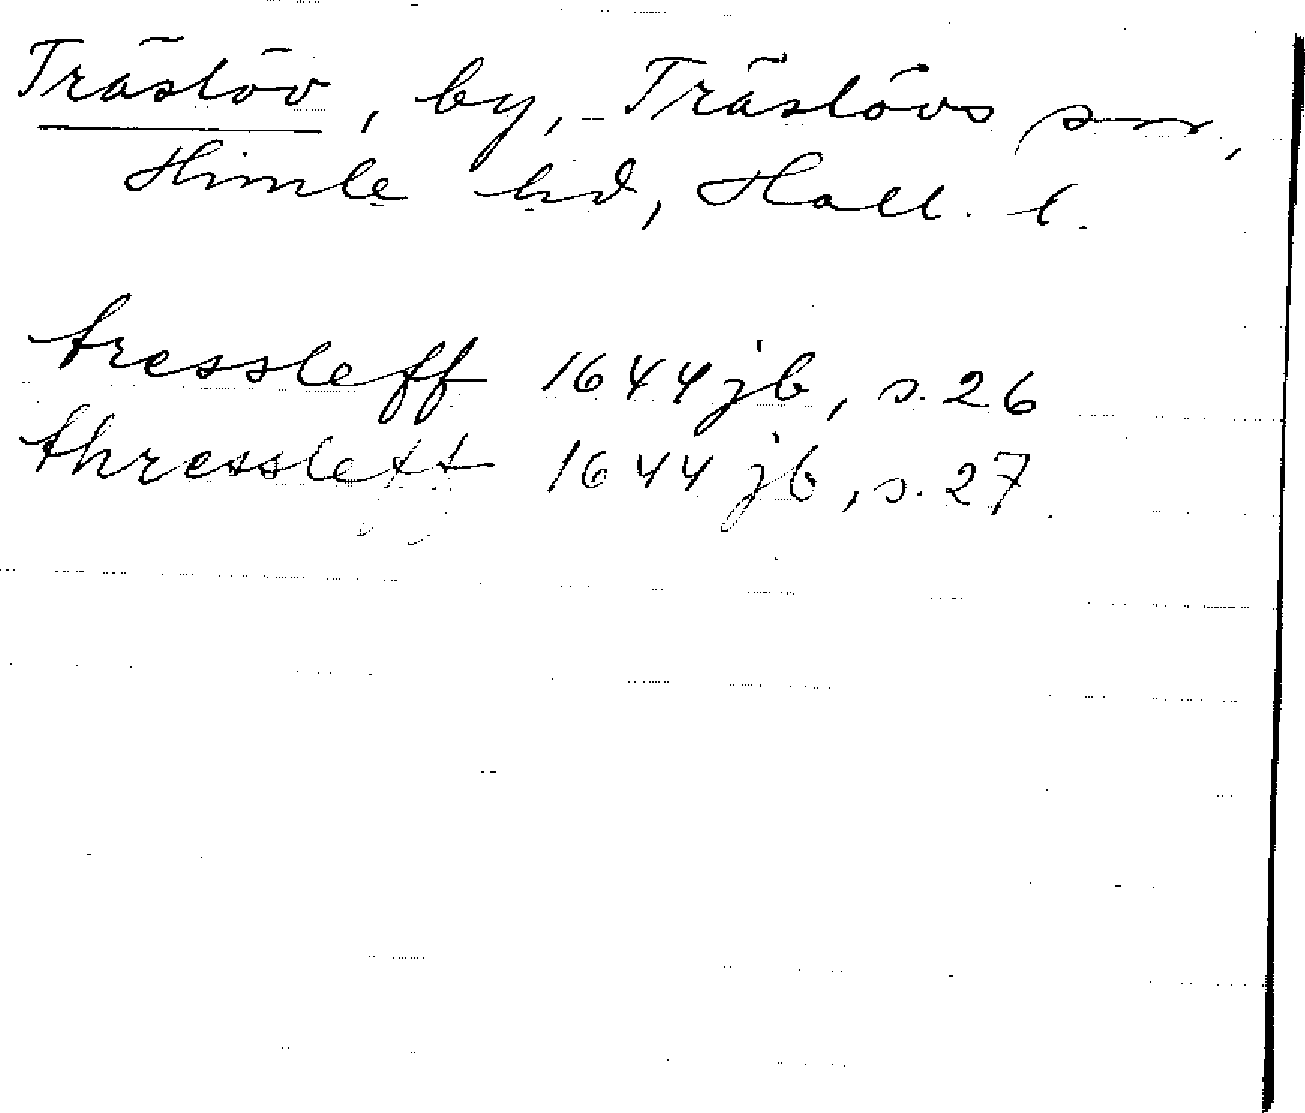 Träslöv, by, Träslövs sn,
Himle hd, Hall. l.
tressleff 1644 jb, s. 26
thresslett 1644 jb, s. 27